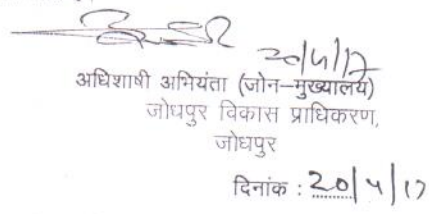 20/4/17
अधिशाषी अभियंता (जोन–मुख्यालय)
जोधपुर विकास प्राधिकरण,
जोधपुर
दिनांक : 20/4/17